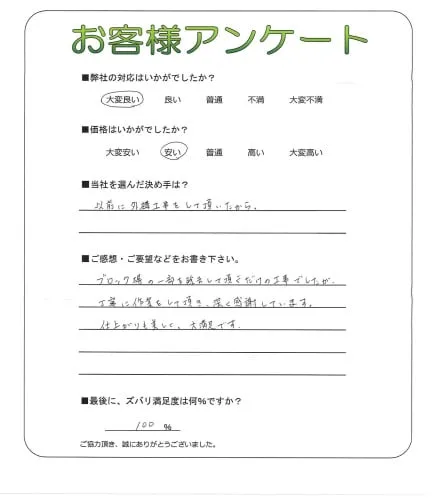 お客様アンケート
■弊社の対応はいかがでしたか?
大変良い 良い 普通 不満 大変不満
■価格はいかがでしたか?
大変安い 安い 普通 高い 大変高い
■当社を選んだ決め手は?
以前に外構工事をして頂いたから。
■ご感想・ご要望などをお書き下さい。
ブロック塀の一部を除去して頂くだけの工事でしたが、
丁寧に作業をして頂き、深く感謝しています。
仕上がりも美しく、大満足です。
■最後に、ズバリ満足度は何%ですか?
100 %
ご協力頂き、誠にありがとうございました。